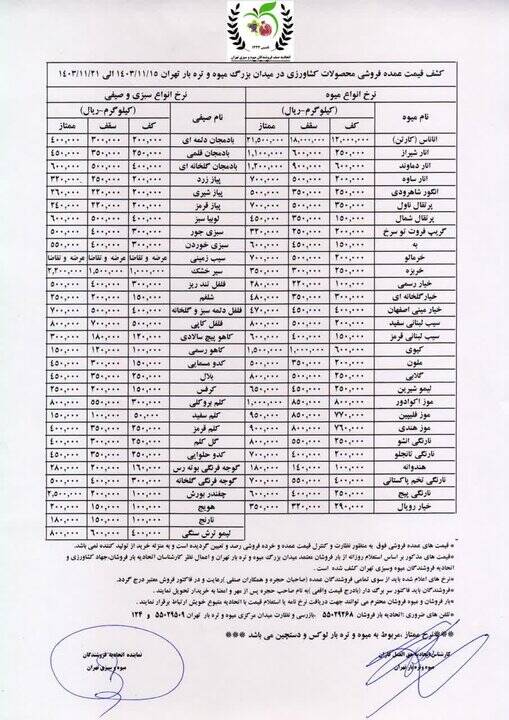 کشف قیمت عمده فروشی محصولات کشاورزی در میدان بزرگ میوه و تره بار تهران ۱۴۰۳/۱۱/۱۵ الی ۱۴۰۳/۱۱/۲۱
نرخ انواع میوه نرخ انواع سبزی و صیفی
نام میوه (کیلوگرم-ریال) نام صیفی (کیلوگرم-ریال)
کف سقف ممتاز کف سقف ممتاز
آناناس (کارتن) ۱۲,۰۰۰,۰۰۰ ۱۸,۰۰۰,۰۰۰ ۲۱,۵۰۰,۰۰۰ بادمجان دلمه ای ۲۰۰,۰۰۰ ۳۰۰,۰۰۰ ۴۰۰,۰۰۰
انار شیراز ۲۵۰,۰۰۰ ۶۰۰,۰۰۰ ۱,۱۰۰,۰۰۰ بادمجان قلمی ۲۵۰,۰۰۰ ۳۵۰,۰۰۰ ۴۵۰,۰۰۰
انار دماوند ۶۰۰,۰۰۰ ۹۰۰,۰۰۰ ۱,۲۰۰,۰۰۰ بادمجان گلخانه ای ۴۰۰,۰۰۰ ۵۰۰,۰۰۰ ۶۰۰,۰۰۰
انار ساوه ۲۰۰,۰۰۰ ۵۰۰,۰۰۰ ۷۰۰,۰۰۰ پیاز زرد ۲۰۰,۰۰۰ ۲۵۰,۰۰۰ ۳۲۰,۰۰۰
انگور شاهرودی ۲۰۰,۰۰۰ ۳۵۰,۰۰۰ ۵۰۰,۰۰۰ پیاز شیری ۲۰۰,۰۰۰ ۲۲۰,۰۰۰ ۲۶۰,۰۰۰
پرتقال ناول ۳۵۰,۰۰۰ ۵۰۰,۰۰۰ ۷۰۰,۰۰۰ پیاز قرمز ۲۰۰,۰۰۰ ۲۲۰,۰۰۰ ۲۴۰,۰۰۰
پرتقال شمال ۱۵۰,۰۰۰ ۳۵۰,۰۰۰ ۴۵۰,۰۰۰ لوبیا سبز ۴۰۰,۰۰۰ ۵۰۰,۰۰۰ ۶۰۰,۰۰۰
گریپ فروت تو سرخ ۲۰۰,۰۰۰ ۲۵۰,۰۰۰ ۳۲۰,۰۰۰ سبزی جور ۳۰۰,۰۰۰ ۴۰۰,۰۰۰ ۵۰۰,۰۰۰
به ۱۵۰,۰۰۰ ۴۵۰,۰۰۰ ۶۰۰,۰۰۰ سبزی خوردن ۳۰۰,۰۰۰ ۴۰۰,۰۰۰ ۵۵۰,۰۰۰
خرمالو ۲۰۰,۰۰۰ ۵۰۰,۰۰۰ ۷۰۰,۰۰۰ سیب زمینی عرضه و تقاضا عرضه و تقاضا عرضه و تقاضا
خربزه ۲۵۰,۰۰۰ ۳۰۰,۰۰۰ ۳۵۰,۰۰۰ سیر خشک ۱,۰۰۰,۰۰۰ ۱,۵۰۰,۰۰۰ ۲,۲۰۰,۰۰۰
خیار رسمی ۱۰۰,۰۰۰ ۲۲۰,۰۰۰ ۲۸۰,۰۰۰ فلفل تند ریز ۳۰۰,۰۰۰ ۴۰۰,۰۰۰ ۵۰۰,۰۰۰
خیارگلخانه ای ۱۵۰,۰۰۰ ۳۵۰,۰۰۰ ۴۸۰,۰۰۰ شلغم ۱۵۰,۰۰۰ ۲۰۰,۰۰۰ ۲۵۰,۰۰۰
خیار مینی اصفهان ۴۰۰,۰۰۰ ۴۵۰,۰۰۰ ۴۷۰,۰۰۰ فلفل دلمه سبز و گلخانه ۴۰۰,۰۰۰ ۵۰۰,۰۰۰ ۷۰۰,۰۰۰
سیب لبنانی سفید ۲۰۰,۰۰۰ ۵۰۰,۰۰۰ ۸۰۰,۰۰۰ فلفل کاپی ۵۰۰,۰۰۰ ۷۰۰,۰۰۰ ۸۰۰,۰۰۰
سیب لبنانی قرمز ۱۵۰,۰۰۰ ۴۰۰,۰۰۰ ۶۰۰,۰۰۰ کاهو پیچ سالادی ۱۲۰,۰۰۰ ۱۸۰,۰۰۰ ۳۰۰,۰۰۰
کیوی ۶۰۰,۰۰۰ ۱,۰۰۰,۰۰۰ ۱,۵۰۰,۰۰۰ کاهو رسمی ۱۰۰,۰۰۰ ۱۲۰,۰۰۰ ۱۵۰,۰۰۰
ملون ۲۰۰,۰۰۰ ۳۵۰,۰۰۰ ۵۰۰,۰۰۰ کدو مسمایی ۱۵۰,۰۰۰ ۲۵۰,۰۰۰ ۳۵۰,۰۰۰
گلابی ۲۵۰,۰۰۰ ۵۰۰,۰۰۰ ۸۰۰,۰۰۰ بلال ۲۵۰,۰۰۰ ۳۵۰,۰۰۰ ۴۵۰,۰۰۰
لیمو شیرین ۲۵۰,۰۰۰ ۴۵۰,۰۰۰ ۶۵۰,۰۰۰ کرفس ۱۵۰,۰۰۰ ۲۰۰,۰۰۰ ۴۵۰,۰۰۰
موز اکوادور ۸۵۰,۰۰۰ ۸۵۰,۰۰۰ ۱,۰۰۰,۰۰۰ کلم بروکلی ۳۰۰,۰۰۰ ۵۵۰,۰۰۰ ۸۰۰,۰۰۰
موز فلیپین ۷۷۰,۰۰۰ ۸۵۰,۰۰۰ ۹۵۰,۰۰۰ کلم سفید ۵۰,۰۰۰ ۱۰۰,۰۰۰ ۱۵۰,۰۰۰
موز هندی ۷۶۰,۰۰۰ ۸۰۰,۰۰۰ ۹۰۰,۰۰۰ کلم قرمز ۲۵۰,۰۰۰ ۳۰۰,۰۰۰ ۴۰۰,۰۰۰
نارنگی انشو ۲۵۰,۰۰۰ ۵۵۰,۰۰۰ ۸۰۰,۰۰۰ گل کلم ۲۵۰,۰۰۰ ۳۰۰,۰۰۰ ۴۰۰,۰۰۰
نارنگی تانجلو ۲۰۰,۰۰۰ ۴۰۰,۰۰۰ ۵۵۰,۰۰۰ کدو حلوایی ۲۵۰,۰۰۰ ۳۵۰,۰۰۰ ۴۵۰,۰۰۰
هندوانه ۱۰۰,۰۰۰ ۱۴۰,۰۰۰ ۱۸۰,۰۰۰ گوجه فرنگی بوته رس ۱۶۰,۰۰۰ ۲۰۰,۰۰۰ ۲۸۰,۰۰۰
نارنگی تخم پاکستانی ۴۰۰,۰۰۰ ۵۵۰,۰۰۰ ۷۰۰,۰۰۰ گوجه فرنگی گلخانه ۳۰۰,۰۰۰ ۴۰۰,۰۰۰ ۵۰۰,۰۰۰
نارنگی پیج ۲۵۰,۰۰۰ ۴۰۰,۰۰۰ ۵۵۰,۰۰۰ چغندر بورش ۱۰۰,۰۰۰ ۲۰۰,۰۰۰ ۲,۵۰۰,۰۰۰
خیار رویال ۲۹۰,۰۰۰ ۳۲۰,۰۰۰ ۳۵۰,۰۰۰ هویج ۱۰۰,۰۰۰ ۱۵۰,۰۰۰ ۲۰۰,۰۰۰
نارنج ۱۰۰,۰۰۰ ۱۵۰,۰۰۰ ۱۸۰,۰۰۰
لیمو ترش سنگی ۴۰۰,۰۰۰ ۶۰۰,۰۰۰ ۸۰۰,۰۰۰
*قیمت های عمده فروشی فوق به منظور نظارت و کنترل قیمت عمده و خرده فروشی رصد و تعیین گردیده است و به منزله خرید از تولید کننده نمی باشد.
*قیمت های مذکور بر اساس استعلام روزانه از بار فروشان معتمد میدان بزرگ میوه و تره بار تهران و اعمال نظر کارشناسان اتحادیه بار فروشان،جهاد کشاورزی و
اتحادیه فروشندگان میوه وسبزی تهران کشف شده است .
*نرخ های اعلام شده باید از سوی تمامی فروشندگان عمده (صاحبان حجره و همکاران صنفی )رعایت و در فاکتور فروش معتبر درج گردد.
*فروشندگان باید فاکتور سر برگ دار (بادرج قیمت واقعی )به نام صاحب حجره پس از مهر و امضا به خریدار تحویل نمایند .
*بار فروشان و میوه فروشان محترم می توانند جهت دریافت نرخ نامه یا استعلام قیمت با اتحادیه متبوع خویش ارتباط برقرار نمایند .
*تلفن های ضروری :اتحادیه بار فروشان ۵۵۰۲۹۲۶۸ ،بازرسی و نظارت میدان مرکزی میوه و تره بار تهران ۵۵۰۲۹۵۰۹ و ۱۲۴
***نرخ ممتاز ،مربوط به میوه و تره بار لوکس و دستچین می باشد ***
کارشناس اتحادیه حق العمل کاران نماینده اتحادیه فروشندگان
میوه و تره بار تهران میوه و سبزی تهران